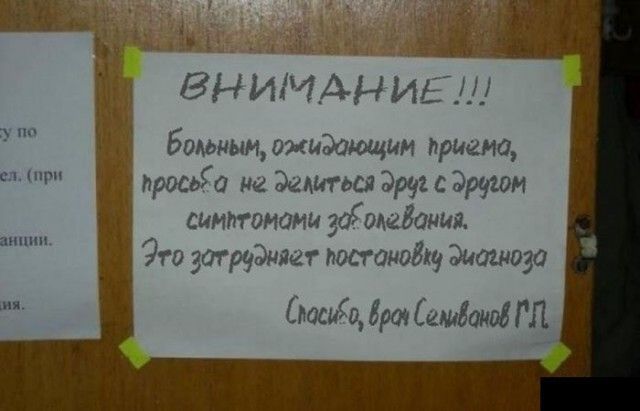 ВНИМАНИЕ!!!
Больным, ожидающим приема,
просьба не делиться друг с другом
симптомами заболевания.
Это затрудняет постановку диагноза
Спасибо, врач Селиванов Г.П.
у по
ел. (при
анции.
ия.